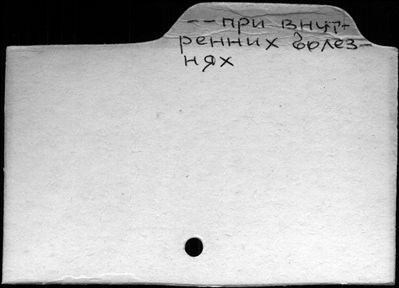 -- при внут-
ренних болез-
нях